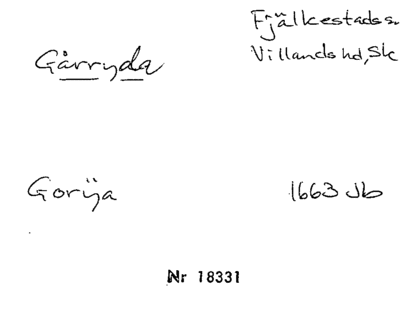 Fjälkestads s.
Gårryda
Villands hd, Sk
Gorÿa
1663 Jb
Nr 18331